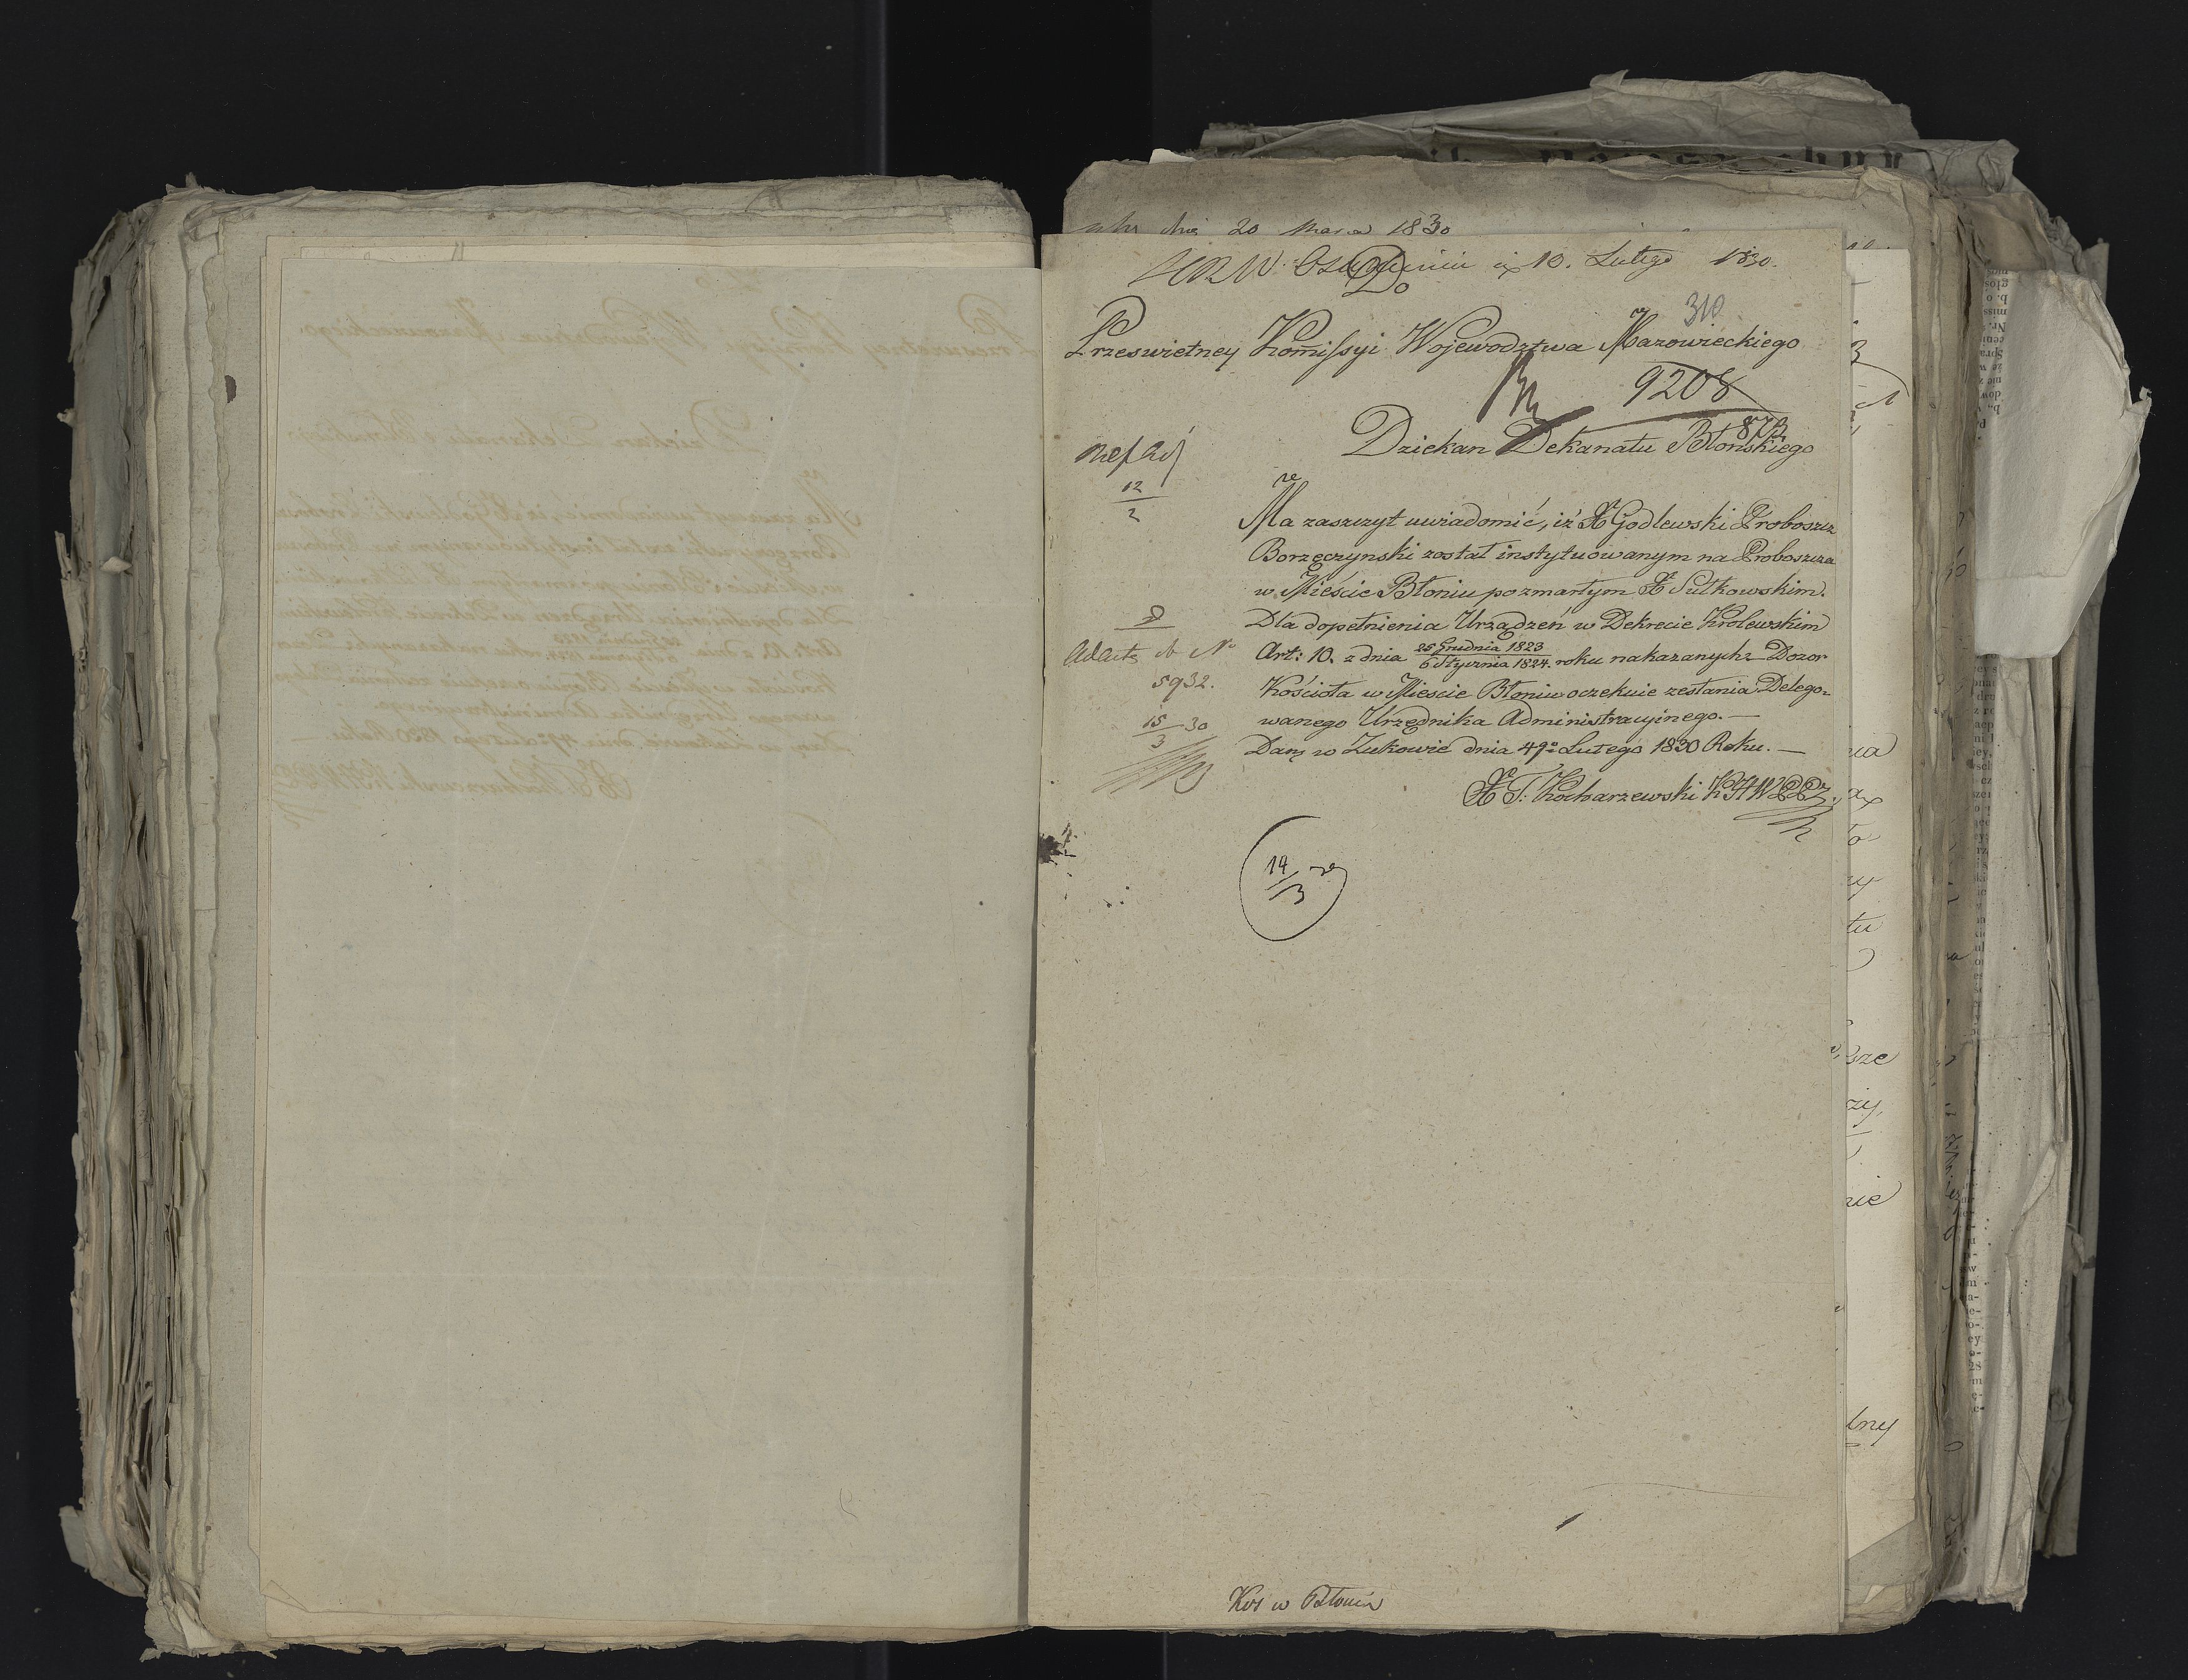 20 Marca 1830
10. Lutego 1830.
Do
310
Przeswietney Kom̄issyi Województwa Mazowieckiego
9208
873
Dziekan Dekanatu Błonskiego
12
2
Ma zaszczyt uwiadomić, iż X Godlewski Proboszcz
Borzęczynski został instytuowanym na Proboszcza
w Mieście Błoniu po zmarłym X Sułkowskim.
Dla dopełnienia Urządzeń w Dekrecie Królewskim
Art: 10. z dnia 25 Grudnia 1823 / 6 Stycznia 1824 roku nakazanych Dozor
Kościoła w Miescie Błoniu oczekuie zesłania Delego-
wanego Urzędnika Administracyinego. —
Dan w Żukowie dnia Lutego 1830 Roku. —
X T. Kocharzewski
ad acta N°
5932.
15 30
3
14
3
Koś w Błoniu